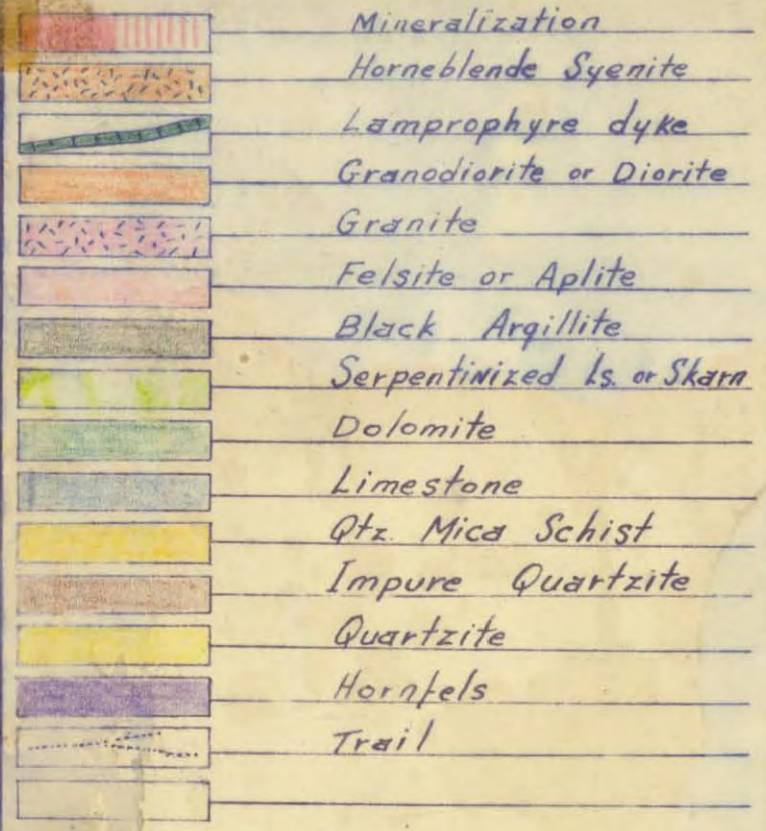 Mineralization
Horneblende Syenite
Lamprophyre dyke
Granodiorite or Diorite
Granite
Felsite or Aplite
Black Argillite
Serpentinized Ls. or Skarn
Dolomite
Limestone
Qtz. Mica Schist
Impure Quartzite
Quartzite
Hornfels
Trail